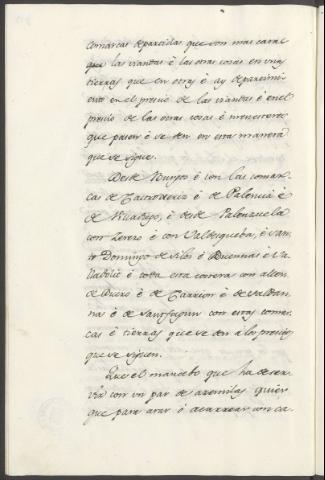 comarcas departidas que son mas caras
que las viandas é las otras cosas en unas
tierras que en otras é ay departimi
ento en el precio de las viandas é en el
precio de las otras cosas é menesteres
que pasen é se den en esta manera
que se sigue.
Desde Burgos é con las comar
cas de Castroxeriz é de Palencia é
de Villadiego, é desde Palenzuela
con Zerezo é con Valdesgueba, é San
to Domingo de Silos é Duennas é Va
lladolid é toda esta correra con allen
de Duero é de Carrion é de Saldan
na é de Santfagun con estas comar
cas é tierras que se den a los precios
que se siguen.
Que el mancebo que ha de ser
vir con un par de azemilas quier
que para arar é acarrear con ca